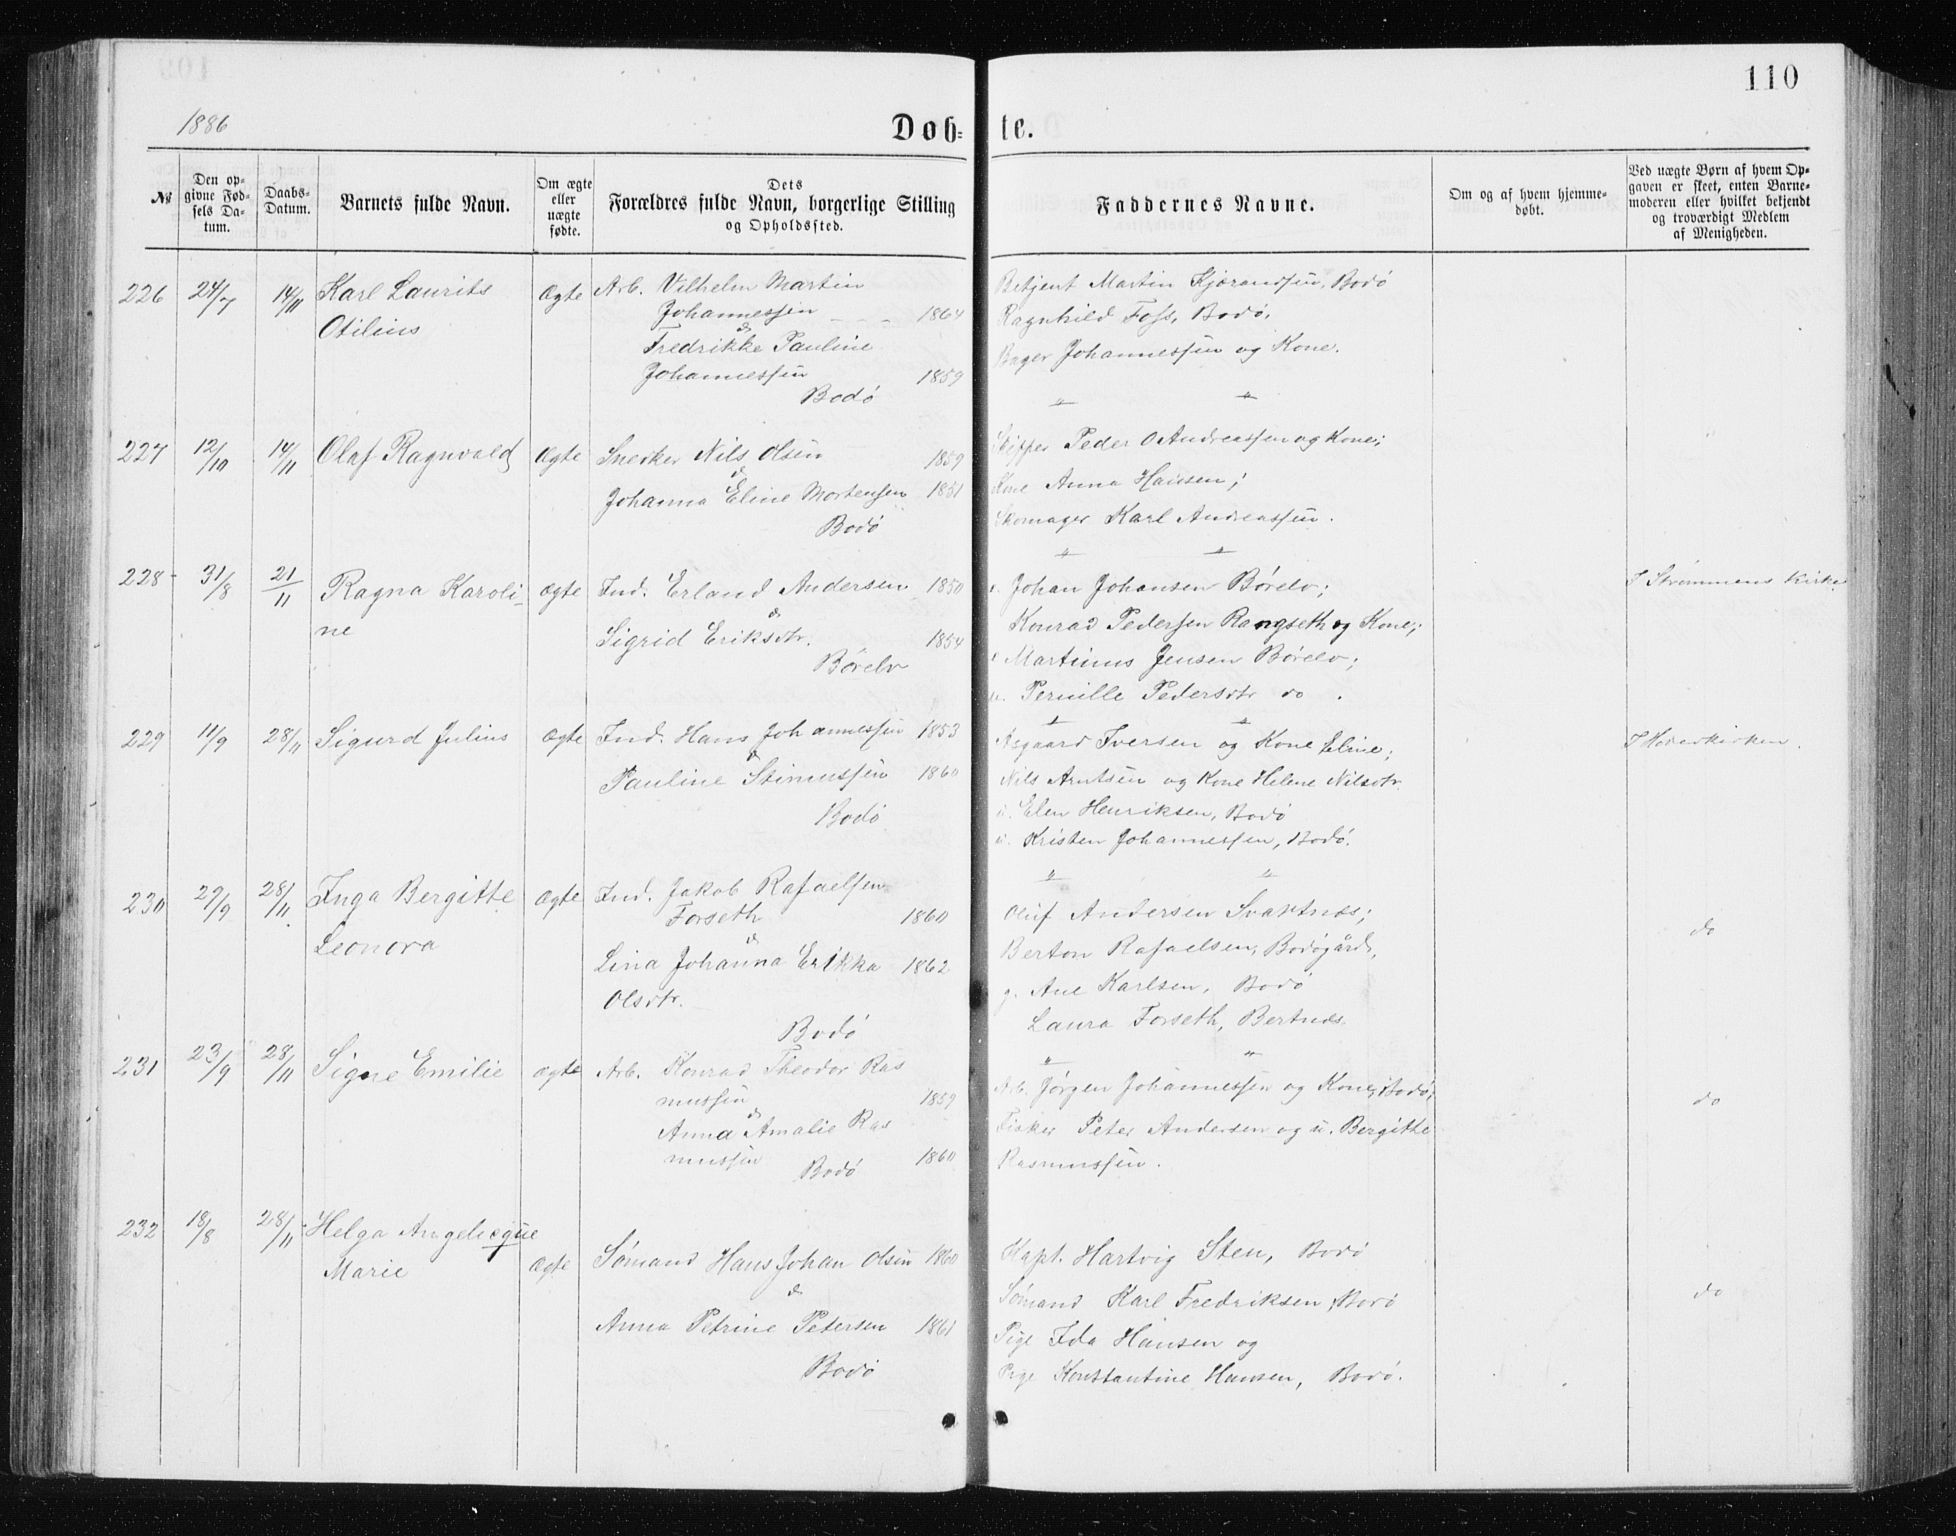 110
1886
Døb-
te.
№
Den op-
givne Fød-
sels Da-
tum.
Daabs-
Datum.
Barnets fulde Navn.
Om ægte
eller
uægte
fødte.
Dets
Forældres fulde Navn, borgerlige Stilling
og Opholdssted.
Faddernes Navne.
Om og af hvem hjemme-
døbt.
Ved uægte Børn af hvem Op-
gaven er skeet, enten Barne-
moderen eller hvilket bekjendt
og troværdigt Medlem
af Menigheden.
226 24/7 14/11 Karl Laurits
Otilius
Ægte
Arb. Vilhelm Martin
Johannessen 1864
&
Fredrikke Pauline
Johannessen 1859
Bodø
Betjent Martin Kjørandsen, Bodø
Ragnhild Foss, Bodø.
Bager Johannessen og Kone.
" "
227 12/10 14/11 Olaf Ragnvald
Ægte
Snedker Nils Olsen 1859
&
Johanna Eline Mortensen 1851
Bodø
Skipper Peder O Andreassen og Kone;
Kone Anna Hansen;
Skomager Karl Andreassen.
" "
228 31/8 21/11 Ragna Karoli-
ne
Ægte
Ind. Erland Andersen 1850
&
Sigrid Eriksdtr. 1854
Børelv
Johan Johansen Børelv;
Konrad Pedersen Rangseth og Kone;
Martinus Jensen Børelv;
u. Pernille Pedersdtr do.
" "
I Strømmens Kirke.
229 11/9 28/11 Sigurd Julius
Ægte
Ind. Hans Johannessen 1853
&
Pauline Stimussen 1860
Bodø
Asgaard Iversen og Kone Eline;
Nils Arntsen og Kone Helene Nilsdtr.
u. Elen Henriksen, Bodø
u. Kristen Johannessen, Bodø.
" "
I Hovedkirken.
230 27/9 28/11 Inga Bergitte
Leonora
Ægte
Ind. Jakob Rafaelsen
Forseth 1860
&
Lina Johanna Erikka 1862
Olsdtr.
Bodø
Oluf Andersen Svartnæs;
Berton Rafaelsen, Bodøgård,
g. Ane Karlsen, Bodø
Laura Forseth, Bertnæs
" "
do
231 23/9 28/11 Signe Emilie
Ægte
Arb. Konrad Theodor Ras
mussen 1859
&
Anna Amalie Ras
mussen 1860
Bodø
Arb. Jørgen Johannessen og Kone, Bodø;
Fisker Peter Andersen og u. Bergitte
Rasmussen.
do
232 18/8 28/11 Helga Angelicque
Marie
Ægte
Sømand Hans Johan Olsen 1860
&
Anna Petrine Petersen 1861
Bodø
Kapt. Hartvig Sten, Bodø
Sømand Karl Fredriksen, Bodø
Pige Ida Hansen og
Pige Konstantine Hansen, Bodø.
do